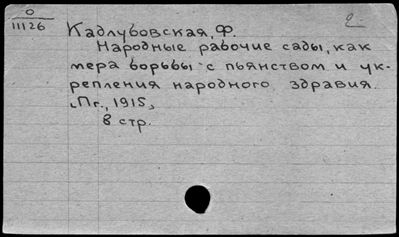 О
11126
Кадлубовская, Ф.
Народные рабочие сады, как
мера борьбы с пьянством и ук-
репления народного здравия.
[Пг., 1915]
8 стр.